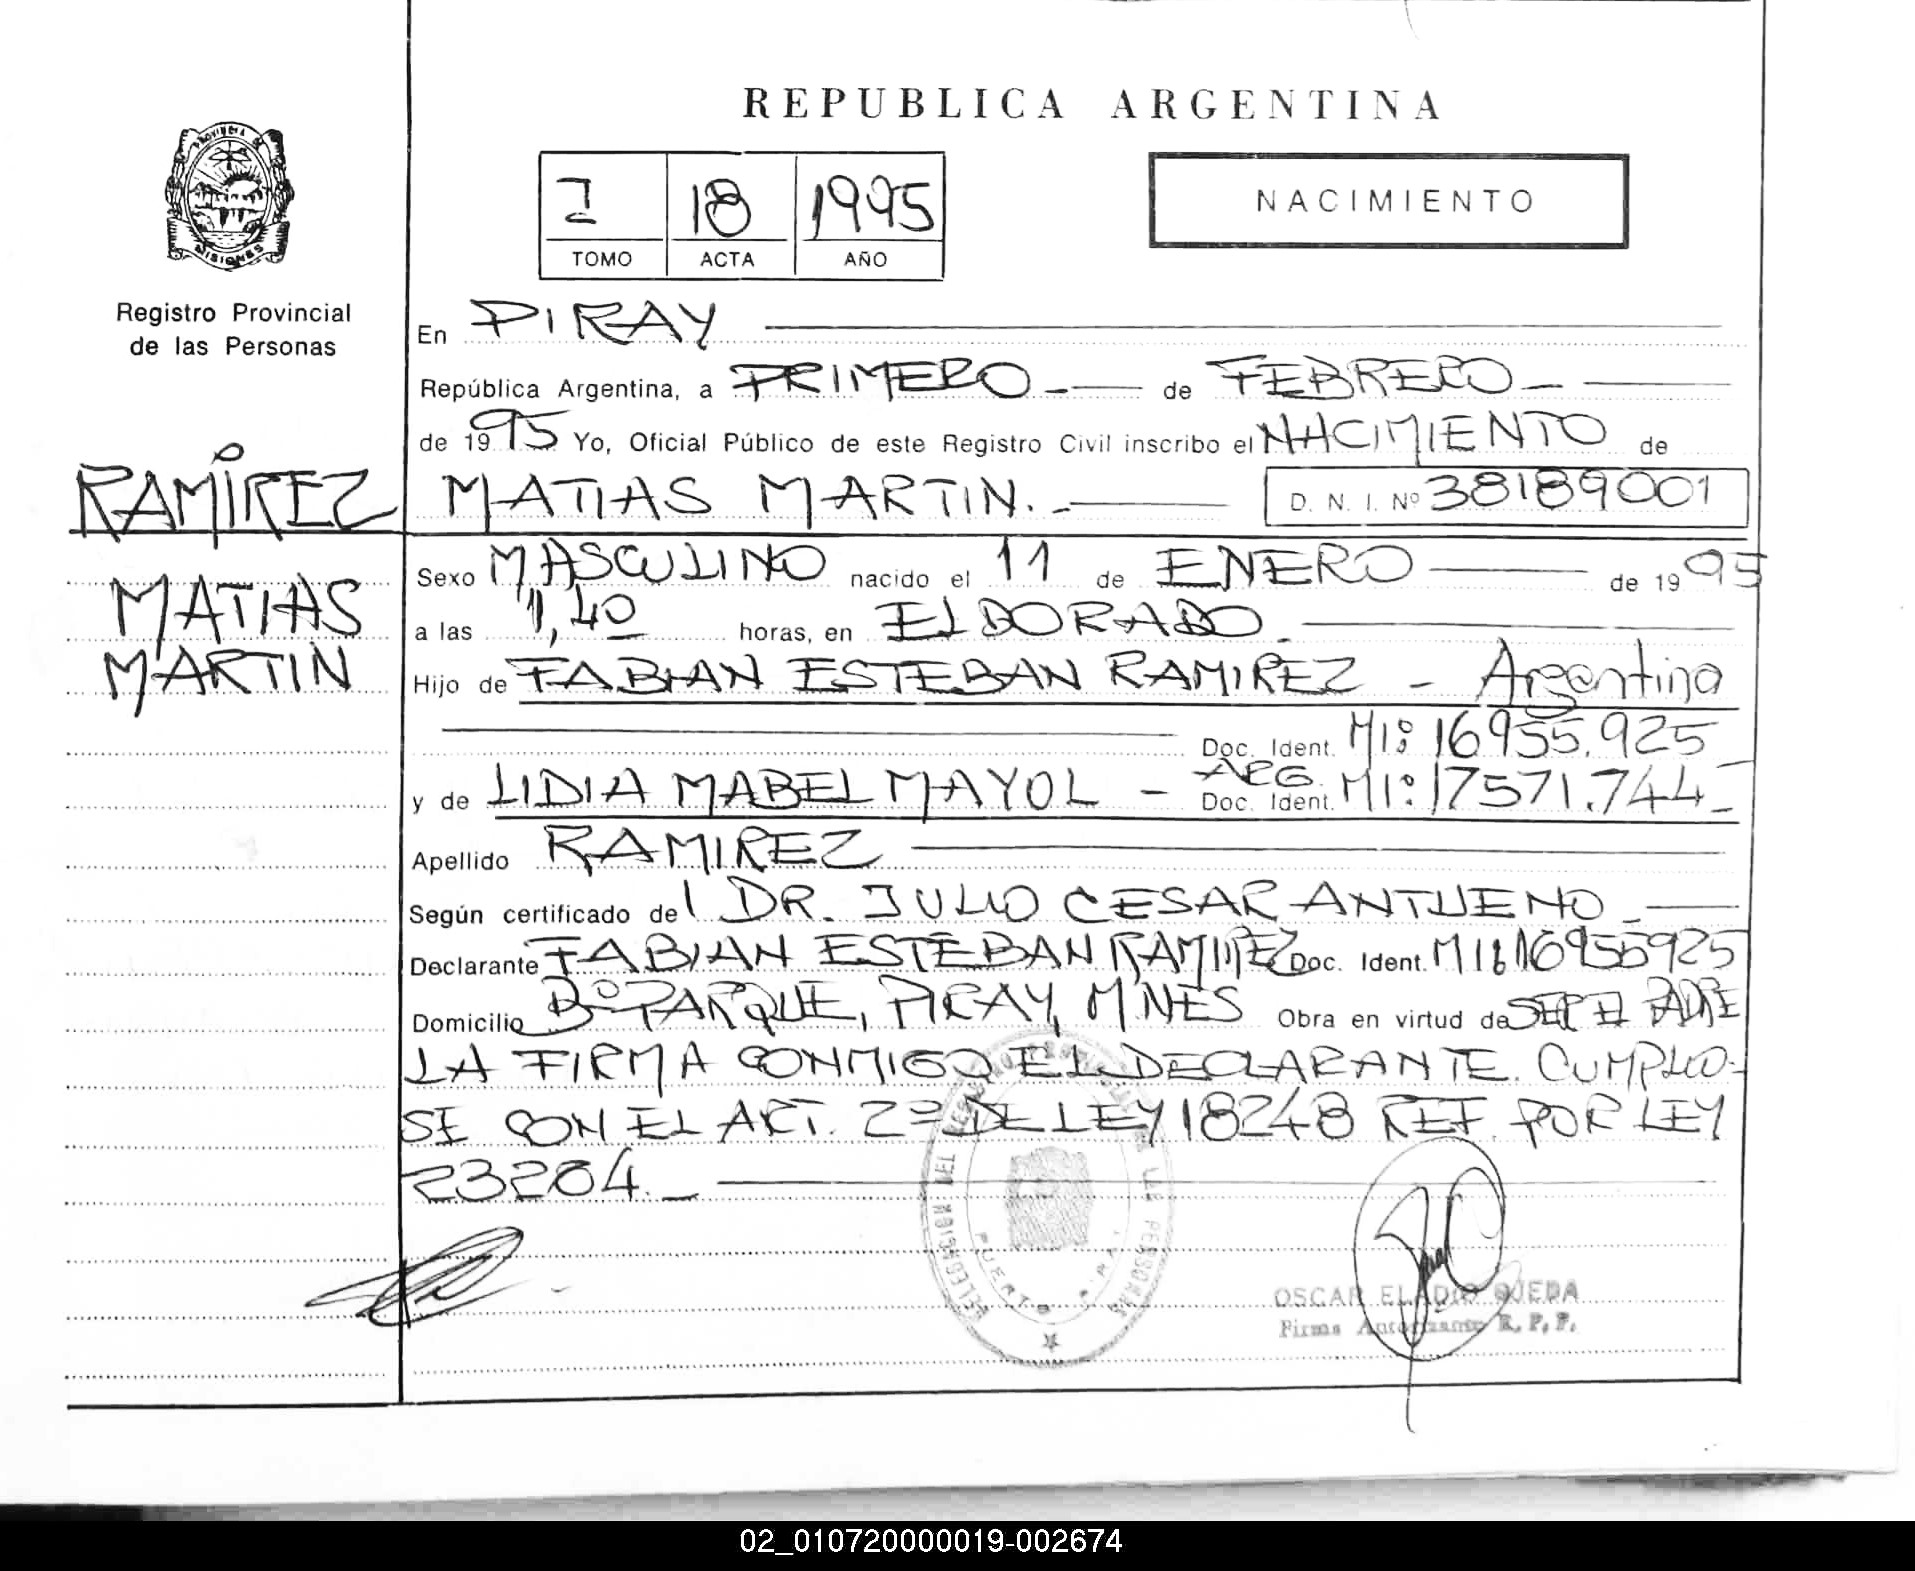 REPUBLICA ARGENTINA
PROVINCIA DE MISIONES
I 18 1995
TOMO ACTA AÑO
NACIMIENTO
Registro Provincial
de las Personas
RAMÍREZ
MATIAS
MARTIN
En PIRAY
República Argentina, a PRIMERO.- de FEBRERO.-
de 1995 Yo, Oficial Público de este Registro Civil inscribo el NACIMIENTO de
MATIAS MARTIN.- D. N. I. Nº 38189001
Sexo MASCULINO nacido el 11 de ENERO de 1995
a las 1,40 horas, en ELDORADO.
Hijo de FABIAN ESTEBAN RAMIREZ - Argentina
Doc. Ident. MI: 16955.925
y de LIDIA MABEL MAYOL - ARG. Doc. Ident. MI: 17571.744-
Apellido RAMIREZ
Según certificado del DR. JULIO CESAR ANTUENO.-
Declarante FABIAN ESTEBAN RAMIREZ Doc. Ident. MI: 16955925
Domicilio Bº PARQUE, PIRAY, MNES Obra en virtud de SER EL PADRE
LA FIRMA CONMIGO EL DECLARANTE. CUMPLIO-
SE CON EL ART. 2º DE LEY 18248 REF. POR LEY
23264.-
DELEGACION DEL REGISTRO PROVINCIAL DE LAS PERSONAS
PUERTO PIRAY
OSCAR ELADIO OJEDA
Firma Autorizante R. P. P.
02_010720000019-002674